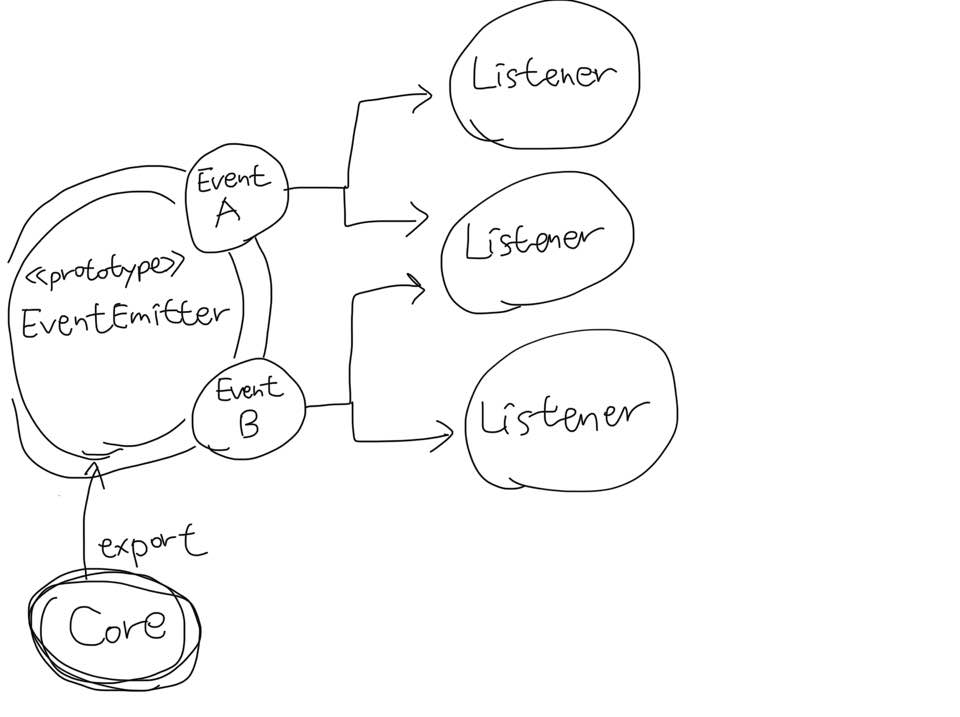 Listener
Event
A
Listener
<<prototype>>
EventEmitter
Event
B
Listener
export
Core